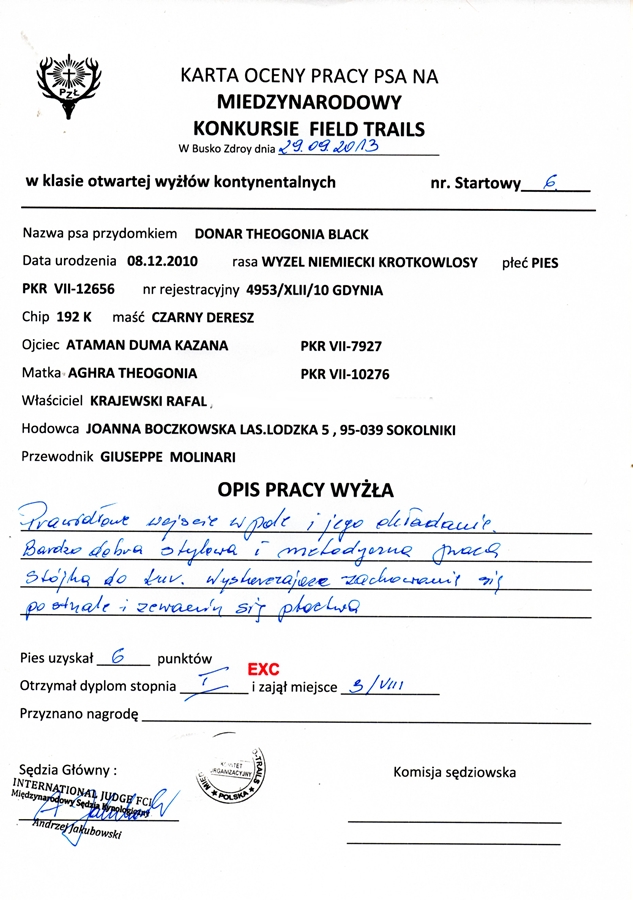 PZŁ
KARTA OCENY PRACY PSA NA
MIEDZYNARODOWY
KONKURSIE FIELD TRAILS
W Busko Zdroy dnia 29.09.2013
w klasie otwartej wyżłów kontynentalnych nr. Startowy 6
Nazwa psa przydomkiem DONAR THEOGONIA BLACK
Data urodzenia 08.12.2010 rasa WYZEL NIEMIECKI KROTKOWLOSY płeć PIES
PKR VII-12656 nr rejestracyjny 4953/XLII/10 GDYNIA
Chip 192 K maść CZARNY DERESZ
Ojciec ATAMAN DUMA KAZANA PKR VII-7927
Matka AGHRA THEOGONIA PKR VII-10276
Właściciel KRAJEWSKI RAFAL
Hodowca JOANNA BOCZKOWSKA LAS.LODZKA 5 , 95-039 SOKOLNIKI
Przewodnik GIUSEPPE MOLINARI
OPIS PRACY WYŻŁA
Prawidłowe wejście w pole i jego okładanie.
Bardzo dobra stylowa i metodyczna praca
Stójka do kur. Wystarczające zachowanie się
po strzale i zerwaniu się ptactwa
Pies uzyskał 6 punktów
EXC
Otrzymał dyplom stopnia I i zajął miejsce 3/VIII
Przyznano nagrodę
Sędzia Główny :
Komisja sędziowska
KOMITET
ORGANIZACYJNY
POLSKA
INTERNATIONAL JUDGE FCI
Międzynarodowy Sędzia Kynologiczny
Andrzej Jakubowski